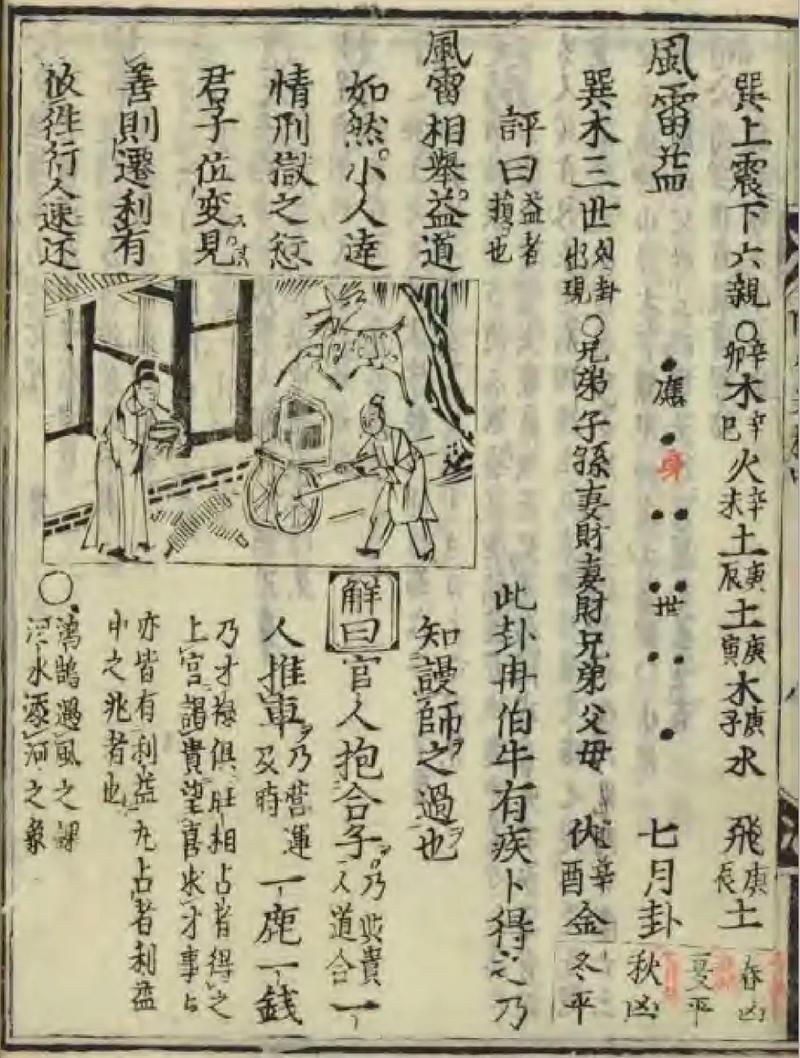 巽上震下六親○辛卯木辛巳火辛未土庚辰土庚寅木庚子水 飛庚辰土 春凶
夏平
風雷益 應 身 世 七月卦 秋凶
巽木三世 出現○兄弟子孫妻財妻財兄弟父母 伏辛酉金 冬平
評曰益者損也 此卦冉伯牛有疾卜得之乃
風雷相舉益道 知謾師之過也
如然小人逵 解曰官人抱合子乃 貴人道合一
情刑獄之愆 人推車乃營運及時一鹿一錢
君子位変見 乃才祿俱旺相占者得之上官謁貴望喜求才事占
善則遷利有 亦皆有利益九占者利益中之兆者也
攸徃行人速还 ○鴻鵠遇風之課河水添河之象